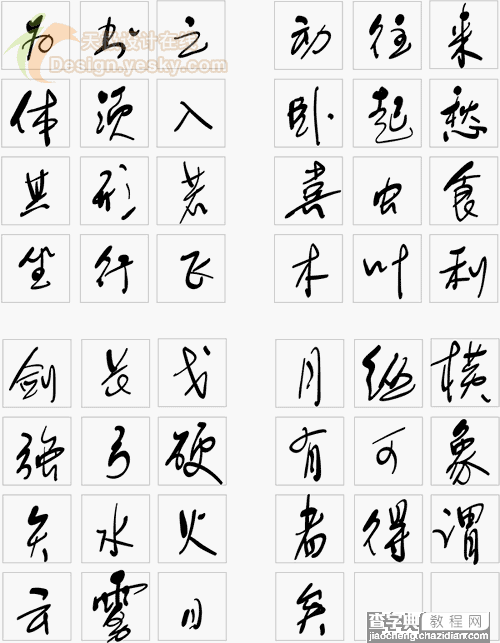 天极设计在线
Design.yesky.com
为书之
体须入
其形若
坐行飞
动往来
卧起愁
喜虫食
木叶利
剑长戈
强弓硬
矢水火
云雾日
月纵横
有可象
者得谓
矣
查字典 教程网
jiaocheng.chazidian.com